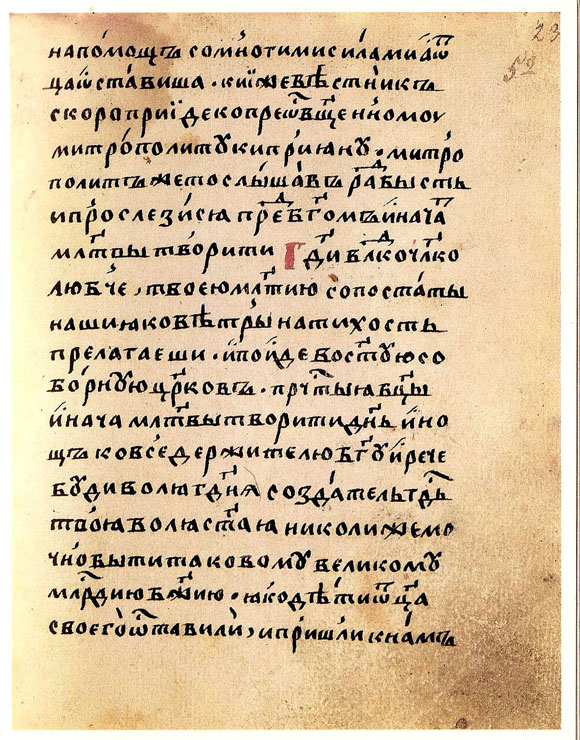 23
50
напомощъ сомнотимисиламиаѿ
цаѡставиша · киїжевѣстникъ
скороприїдекопреѡс҃вщенномоу
митрополитукиприꙗну · митро
политъжетослышавъ ра҃дбысть
ипрослезисѧ пре҃дбг҃омъиначат҃
мл҃твытворити Гд҃ивл҃дкочл҃ко
любче , твоеюмл҃тию сопостаты
нашиꙗковѣтрынатихость
прелагаеши · ипоидевост҃уюсо
борнуюцр҃ковь · прч҃тыꙗбц҃ы
иначамл҃твытворитиднь ино
щъ ковседержителюбг҃у ирече
будиволѧгд҃нѧ создательгд҃ь
твоꙗволѧст҃аꙗ николижемо
чнобытитаковомувеликому
млр҃дию бж҃ию · ꙗкодѣтиѿц҃а
своегоѿтавили , ипришликнамъ